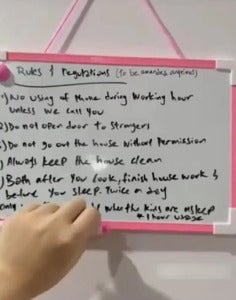 Rules & Regulations (to be amended anytime)
1) No using of Phone during working hour
unless we call you
2) Do not open door to strangers
3) Do not go out the house without Permission
) Always keep the house clean
) Both after you cook, finish house work &
before you sleep. Twice a day
only when the kids are asleep
* 1 hour usage